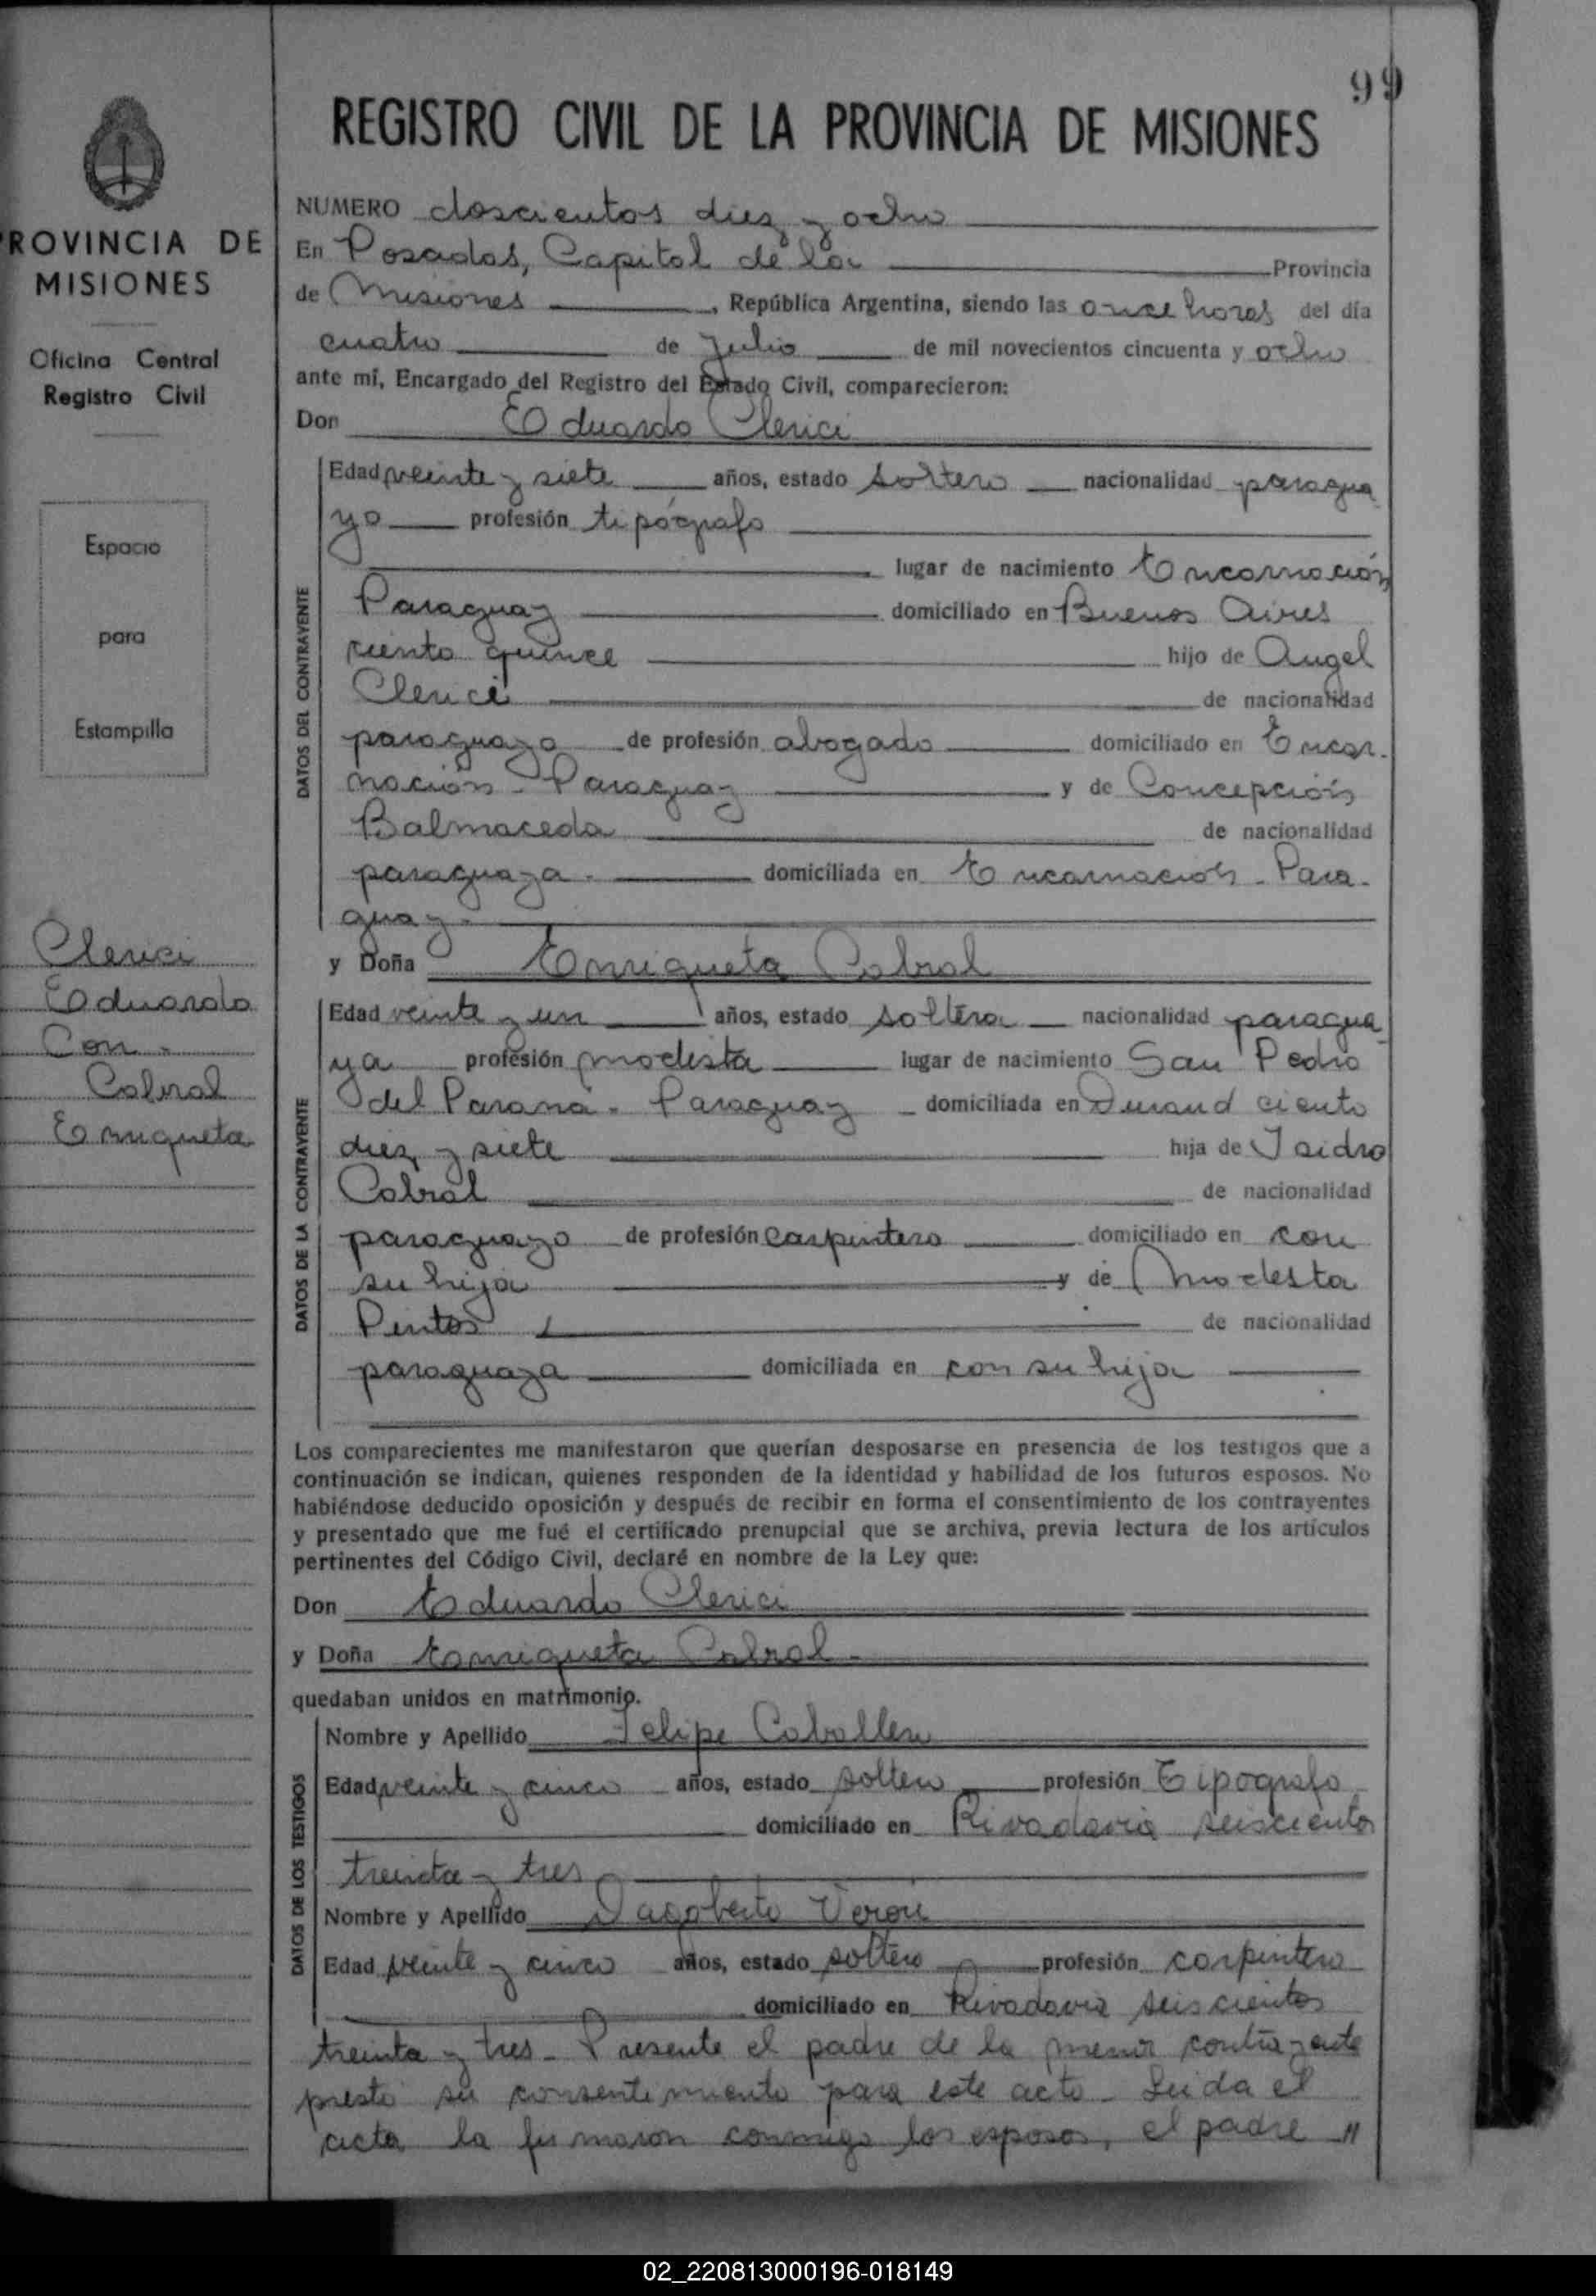 99
REGISTRO CIVIL DE LA PROVINCIA DE MISIONES
PROVINCIA DE
MISIONES
Oficina Central
Registro Civil
Espacio
para
Estampilla
Clerici
Eduardo
Con -
Cabral
Enriqueta
NUMERO doscientos diez y ocho
En Posadas, Capital de la Provincia
de Misiones, República Argentina, siendo las once horas del día
cuatro de Julio de mil novecientos cincuenta y ocho
ante mí, Encargado del Registro del Estado Civil, comparecieron:
Don Eduardo Clerici
DATOS DEL CONTRAYENTE
Edad veinte y siete años, estado soltero nacionalidad paragua
yo profesión tipógrafo
lugar de nacimiento Encarnación
Paraguay domiciliado en Buenos Aires
ciento quince hijo de Angel
Clerici de nacionalidad
paraguayo de profesión abogado domiciliado en Encar-
nación - Paraguay y de Concepción
Balmaceda de nacionalidad
paraguaya - domiciliada en Encarnación - Para-
guay -
y Doña Enriqueta Cabral
DATOS DE LA CONTRAYENTE
Edad veinte y un años, estado soltera nacionalidad paragua
ya profesión modista lugar de nacimiento San Pedro
del Paraná - Paraguay - domiciliada en Durand ciento
diez y siete hija de Isidro
Cabral de nacionalidad
paraguayo de profesión carpintero domiciliado en con
su hija y de Modesta
Pintos de nacionalidad
paraguaya domiciliada en con su hija
Los comparecientes me manifestaron que querían desposarse en presencia de los testigos que a
continuación se indican, quienes responden de la identidad y habilidad de los futuros esposos. No
habiéndose deducido oposición y después de recibir en forma el consentimiento de los contrayentes
y presentado que me fué el certificado prenupcial que se archiva, previa lectura de los artículos
pertinentes del Código Civil, declaré en nombre de la Ley que:
Don Eduardo Clerici
y Doña Enriqueta Cabral -
quedaban unidos en matrimonio.
DATOS DE LOS TESTIGOS
Nombre y Apellido Felipe Caballero
Edad veinte y cinco años, estado soltero profesión Tipografo
domiciliado en Rivadavia seiscientos
treinta y tres
Nombre y Apellido Dagoberto Verón
Edad veinte y cinco años, estado soltero profesión carpintero
domiciliado en Rivadavia seiscientos
treinta y tres - Presente el padre de la menor contrayente
prestó su consentimiento para este acto - Leida el
acta la firmaron conmigo los esposos, el padre "
02_220813000196-018149